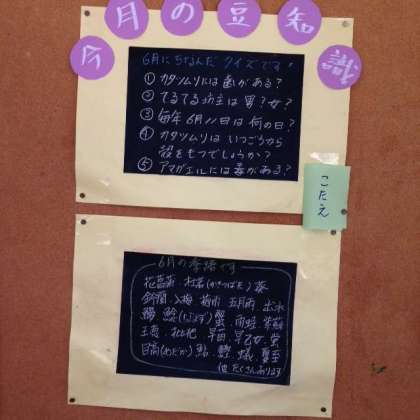 今月の豆知識
6月にちなんだクイズです!
① カタツムリには歯がある?
② てるてる坊主は男?女?
③ 毎年6月11日は何の日?
④ カタツムリはいつごろから
殻をもつでしょうか?
⑤ アマガエルには毒がある?
こたえ
6月の季語です
花菖蒲 杜若(かきつばた) 葵
紫陽 入梅 梅雨 五月雨 出水
鯰(なまず) 蟹 雨蛙 紫蘇
枇杷 早苗 早乙女 蛍
目高(めだか) 鮎 鰹 蟻 夏至
他 たくさんあります